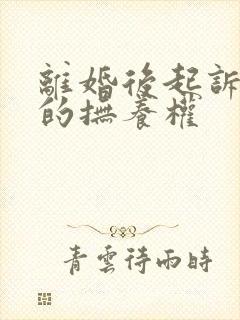 離婚後起訴
的撫養權
青雲待雨時